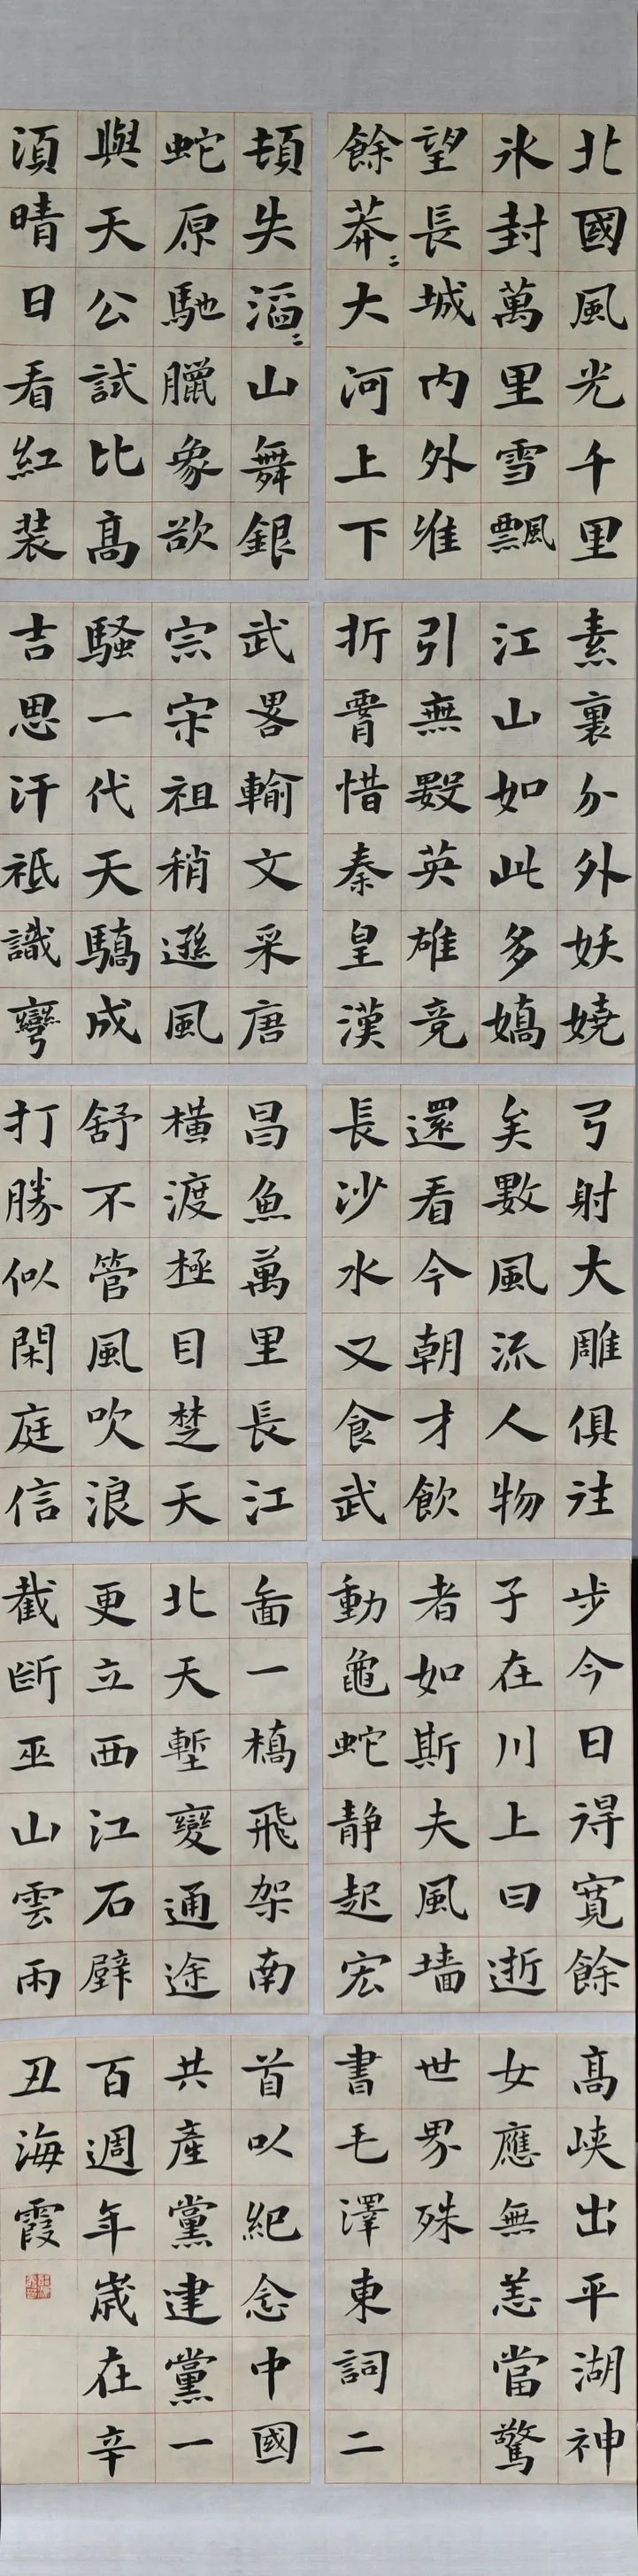 北國風光千里
氷封萬里雪飄
望長城内外惟
餘莽〻大河上下
頓失滔〻山舞銀
蛇原馳臘象欲
與天公試比高
須晴日看紅裝
素裹分外妖嬈
江山如此多嬌
引無數英雄競
折腰惜秦皇漢
武畧輸文采唐
宗宋祖稍遜風
騷一代天驕成
吉思汗祗識彎
弓射大雕俱往
矣數風流人物
還看今朝才飲
長沙水又食武
昌魚萬里長江
橫渡極目楚天
舒不管風吹浪
打勝似閑庭信
步今日得寬餘
子在川上曰逝
者如斯夫風墻
動龜蛇静起宏
啚一橋飛架南
北天塹變通途
更立西江石壁
截斷巫山雲雨
高峽出平湖神
女應無恙當驚
世界殊
書毛澤東詞二
首以紀念中國
共產黨建黨一
百週年歲在辛
丑海霞